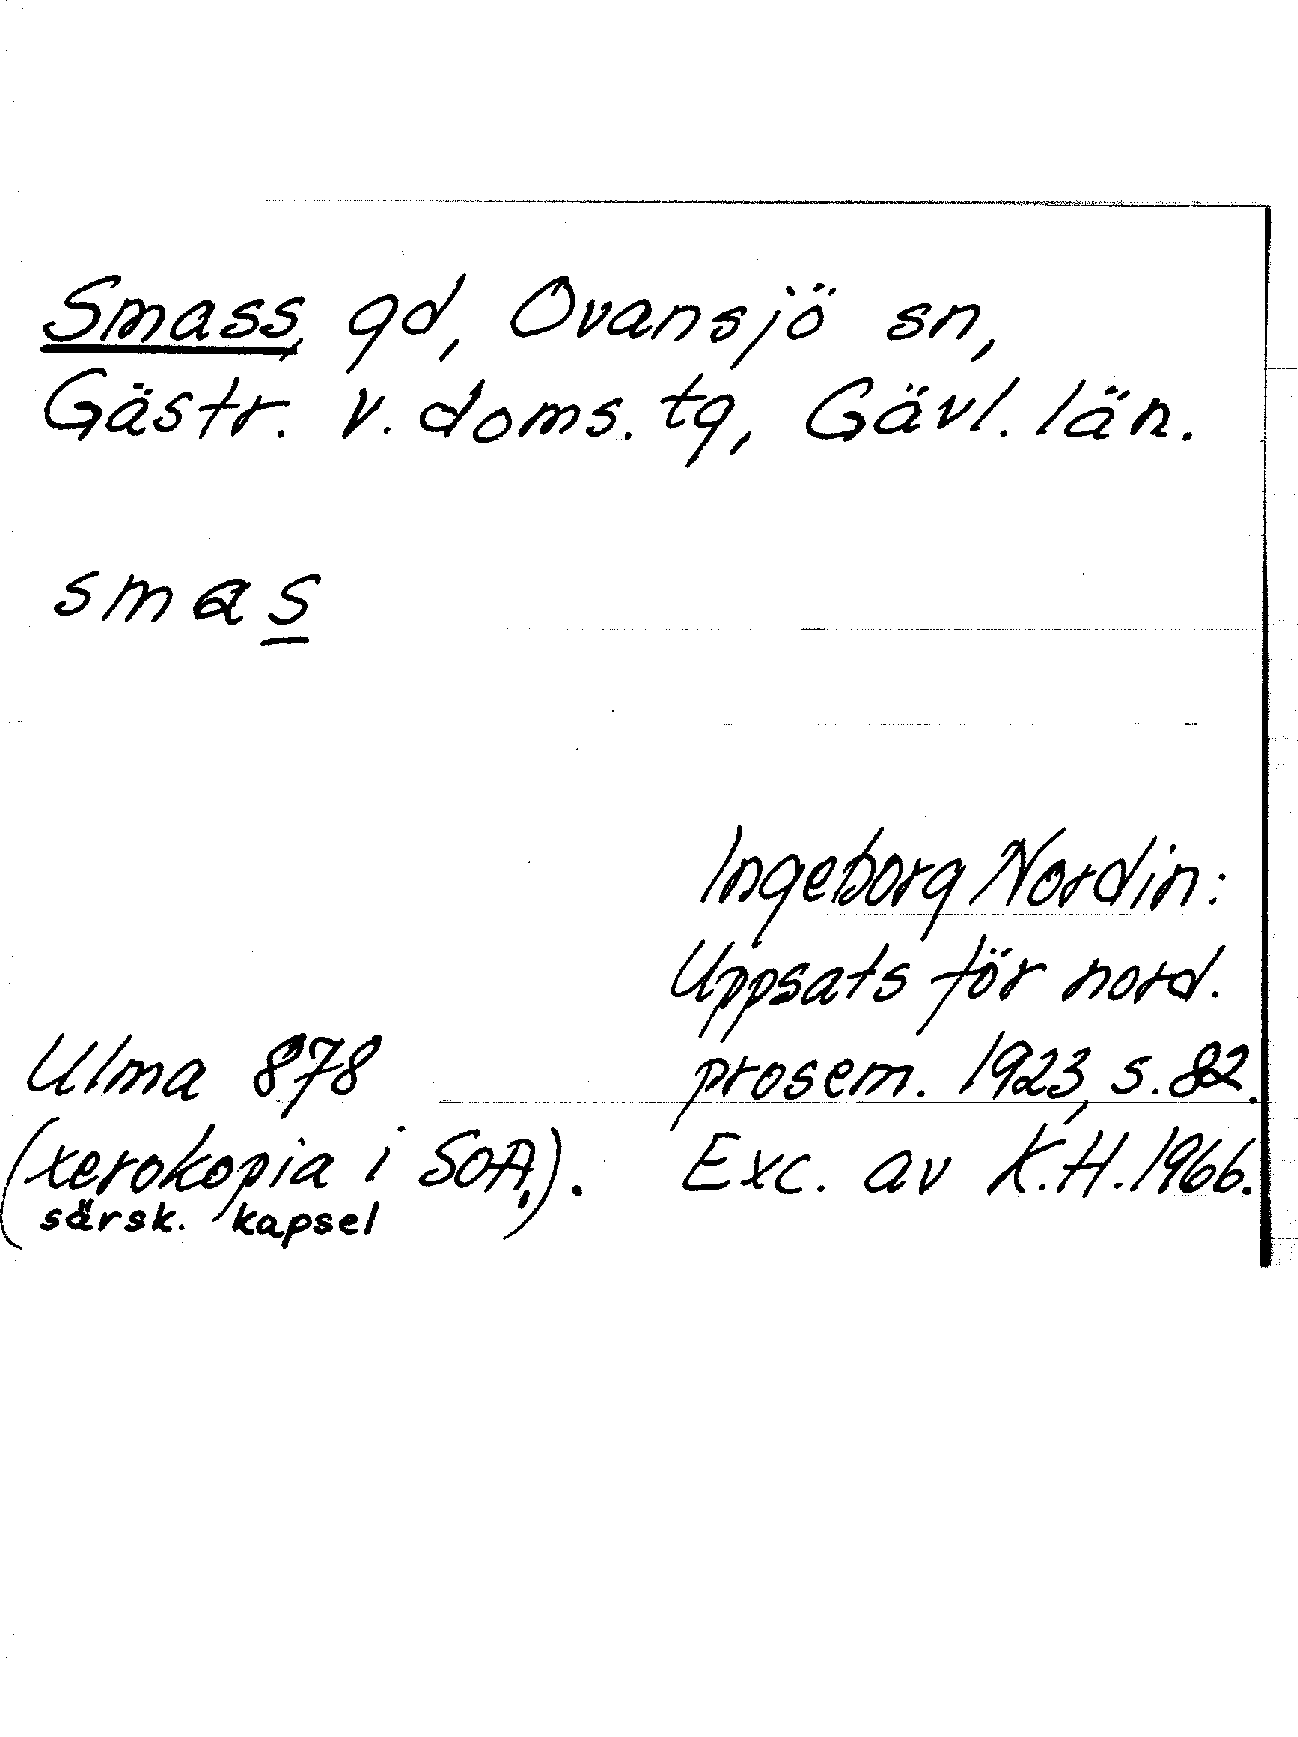 Smass, gd, Ovansjö sn,
Gästr. v. doms. tg, Gävl. län.
smas
Ingeborg Nordin:
Uppsats för nord.
prosem. 1923, s. 82.
Exc. av K.H. 1966.
Ulma 878
(xerokopia i SOA,).
särsk. kapsel